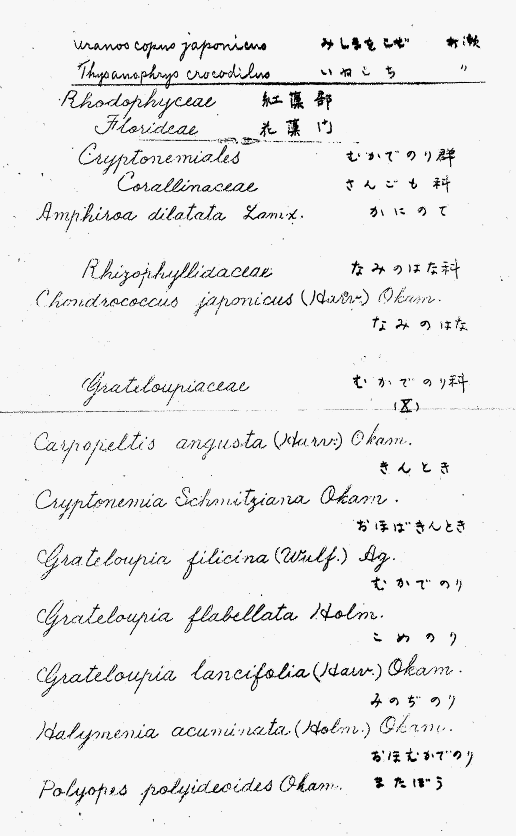 Uranoscopus japonicus みしまをこぜ
Thysanophrys crocodilus いねごち 〃
Rhodophyceae 紅藻部
Florideae 花藻門
Cryptonemiales むかでのり群
Corallinaceae さんごも科
Amphiroa dilatata Lamx. かにのて
Rhizophyllidaceae なみのはな科
Chondrococcus japonicus (Harv.) Okam.
なみのはな
Grateloupiaceae むかでのり科
(X)
Carpopeltis angusta (Harv.) Okam.
きんとき
Cryptonemia Schmitziana Okam.
おほばきんとき
Grateloupia filicina (Wulf.) Ag.
むかでのり
Grateloupia flabellata Holm.
こめのり
Grateloupia lancifolia (Harv.) Okam.
みのぢのり
Halymenia acuminata (Holm.) Okam.
おほむかでのり
Polyopes polyideoides Okam. またぼう